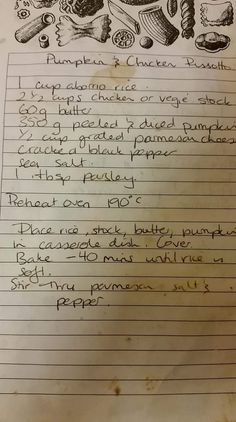 Pumpkin & Chicken Rissotto
1 cup aborio rice.
2 1/2 cups chicken or vege stock
60g butter
350g peeled & diced pumpkin
1/2 cup grated parmesan cheese
cracked black pepper
sea salt.
1 tbsp parsley.
Preheat oven 190°c
Place rice, stock, butter, pumpkin
in casserole dish. Cover.
Bake - 40 mins until rice is
soft.
Stir thru parmesan salt &
pepper.